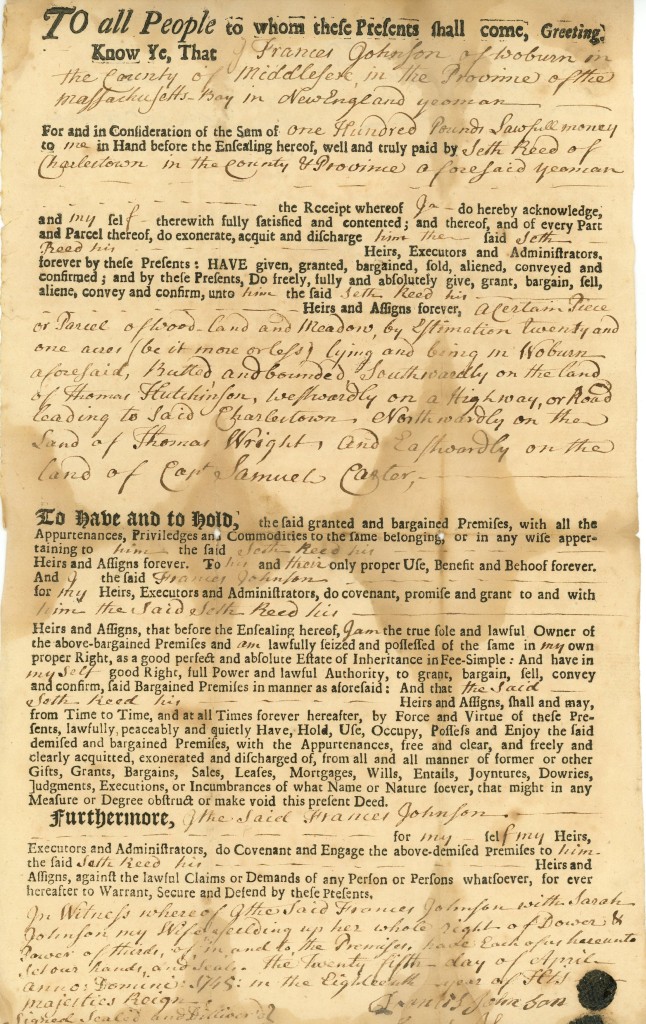 TO all People to whom these Presents shall come, Greeting.
Know Ye, That I Frances Johnson of Woburn in
the County of Middlesex in the Province of the
Massachusetts-Bay in New England yeoman
For and in Consideration of the Sum of one Hundred Pounds Lawfull money
to me in Hand before the Ensealing hereof, well and truly paid by Seth Reed of
Charlestown in the County & Province aforesaid yeoman
the Receipt whereof I do hereby acknowledge,
and my self therewith fully satisfied and contented; and thereof, and of every Part
and Parcel thereof, do exonerate, acquit and discharge him the said Seth
Reed his Heirs, Executors and Administrators,
forever by these Presents: HAVE given, granted, bargained, sold, aliened, conveyed and
confirmed; and by these Presents, Do freely, fully and absolutely give, grant, bargain, sell,
aliene, convey and confirm, unto him the said Seth Reed his
Heirs and Assigns forever, a Certain Piece
or Parcel of wood-land and Meadow, by Estimation twenty and
one acres (be it more or less) lying and being in Woburn
aforesaid, Butted and bounded, Southwardly on the land
of Thomas Hutchinson, westwardly on a Highway, or Road
leading to said Charlestown, Northwardly on the
Land of Thomas Wright, And Eastwardly on the
land of Capt Samuel Carter,
To Have and to Hold, the said granted and bargained Premises, with all the
Appurtenances, Priviledges and Commodities to the same belonging, or in any wise apper-
taining to him the said Seth Reed his
Heirs and Assigns forever. To his and their only proper Use, Benefit and Behoof forever.
And I the said Frances Johnson
for my Heirs, Executors and Administrators, do covenant, promise and grant to and with
him the Said Seth Reed his
Heirs and Assigns, that before the Ensealing hereof, I am the true sole and lawful Owner of
the above-bargained Premises and am lawfully seized and possessed of the same in my own
proper Right, as a good perfect and absolute Estate of Inheritance in Fee-Simple: And have in
my self good Right, full Power and lawful Authority, to grant, bargain, sell, convey
and confirm, said Bargained Premises in manner as aforesaid: And that the Said
Seth Reed his Heirs and Assigns, shall and may,
from Time to Time, and at all Times forever hereafter, by Force and Virtue of these Pre-
sents, lawfully, peaceably and quietly Have, Hold, Use, Occupy, Possess and Enjoy the said
demised and bargained Premises, with the Appurtenances, free and clear, and freely and
clearly acquitted, exonerated and discharged of, from all and all manner of former or other
Gifts, Grants, Bargains, Sales, Leases, Mortgages, Wills, Entails, Joyntures, Dowries,
Judgments, Executions, or Incumbrances of what Name or Nature soever, that might in any
Measure or Degree obstruct or make void this present Deed.
Furthermore, I the Said Frances Johnson
for my self my Heirs,
Executors and Administrators, do Covenant and Engage the above-demised Premises to him
the said Seth Reed his Heirs and
Assigns, against the lawful Claims or Demands of any Person or Persons whatsoever, for ever
hereafter to Warrant, Secure and Defend by these Presents.
In Witness whereof I the Said Frances Johnson with Sarah
Johnson my Wife yeilding up her whole right of Dower &
Power of thirds, of, in, and to, the Premises, have Each of us hereunto
set our hands, and seals the twenty fifth day of April
anno: Domini: 1745: in the Eighteenth year of His
majesties Reign.
Signed Sealed and Delivered Johnson